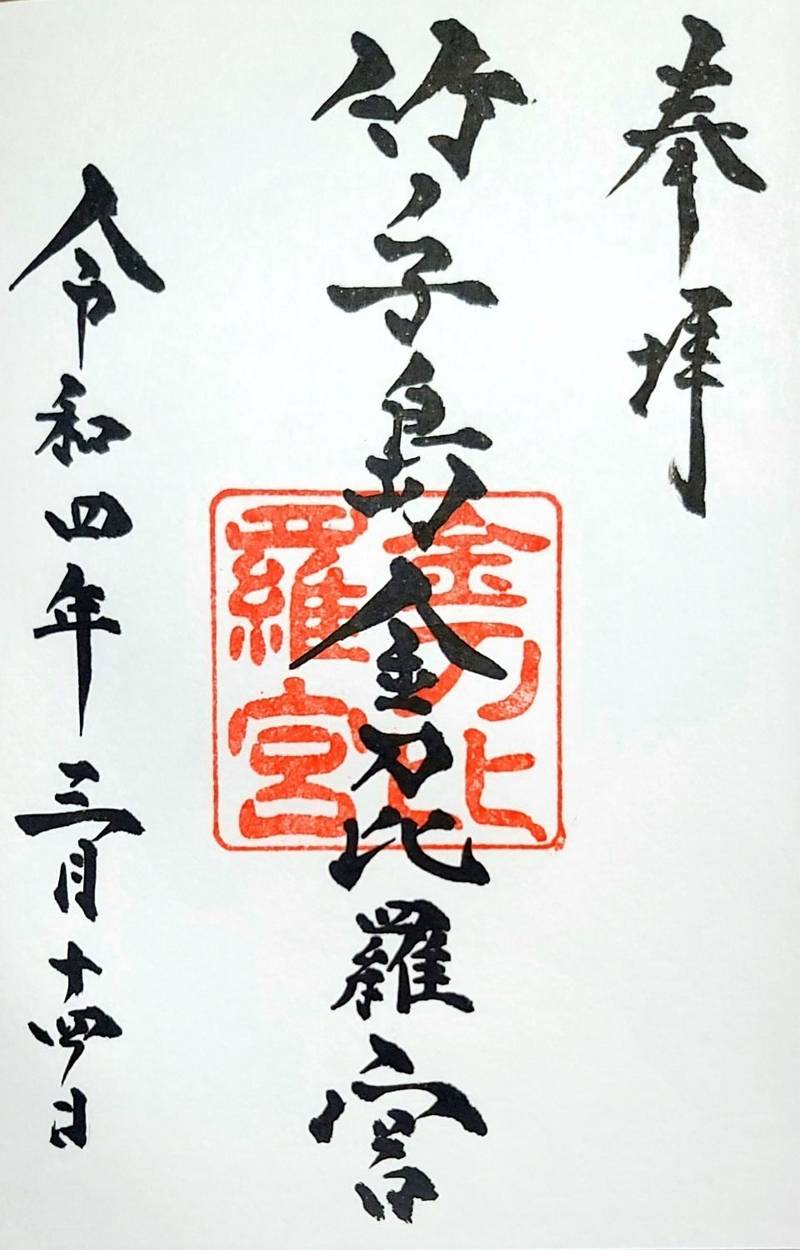 奉拝
竹子島金刀比羅宮
金刀比
羅宮
令和四年三月十四日